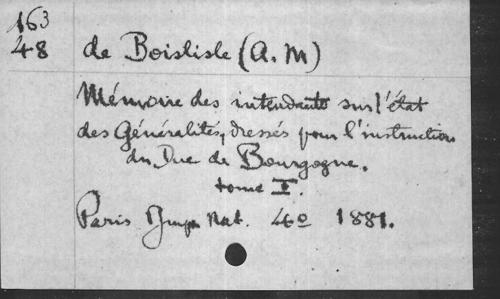 163
48
de Boislisle (A. M)
Mémoire des intendants sur l'état
des Généralités, dressés pour l'instruction
du Duc de Bourgogne.
tome I.
Paris Imp. Nat. 4o 1881.